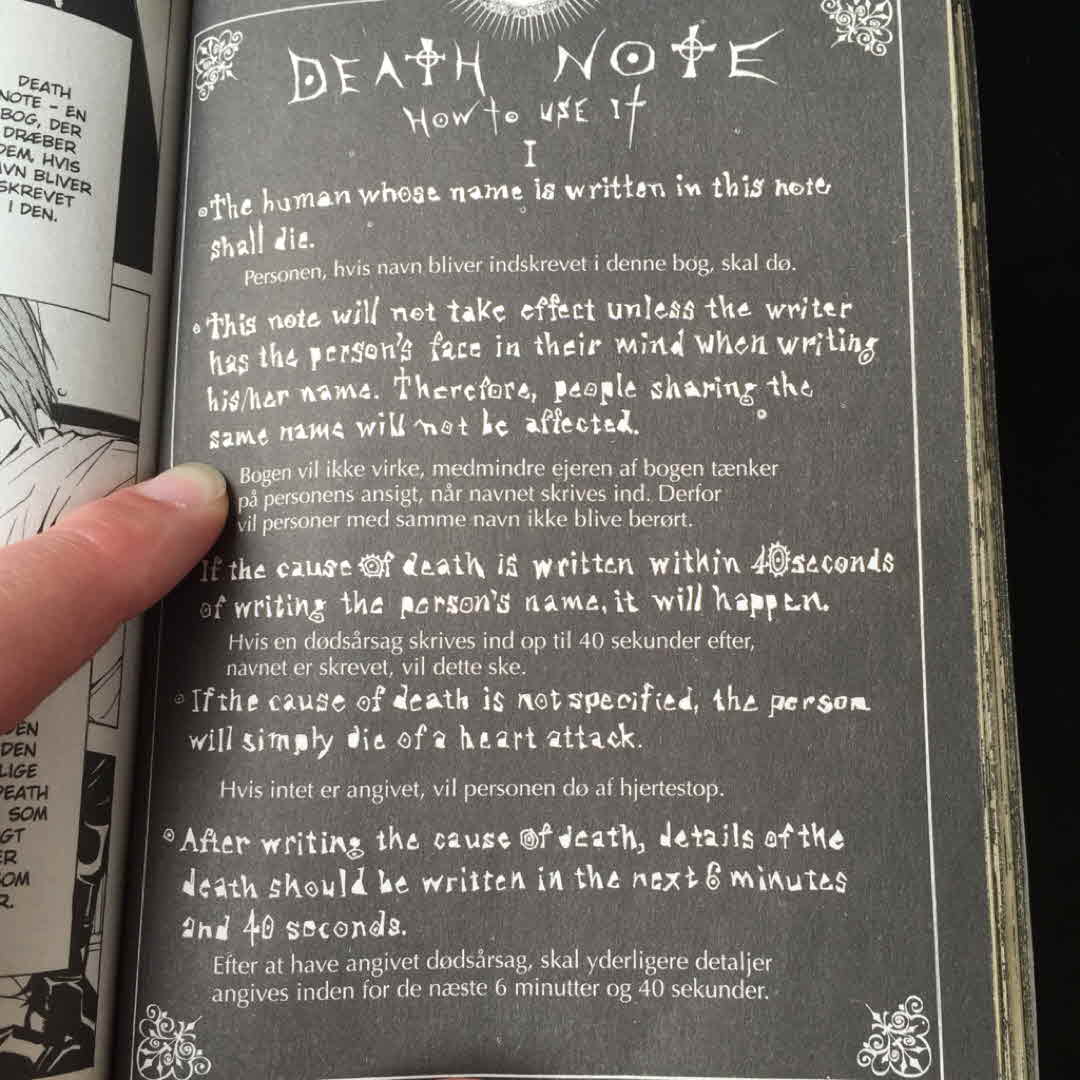 DEATH
NOTE - EN
BOG, DER
DRÆBER
DEM, HVIS
BLIVER
SKREVET
I DEN.
DEATH NOTE
HOW to USE It
I
The human whose name is written in this note
shall die.
Personen, hvis navn bliver indskrevet i denne bog, skal dø.
This note will not take effect unless the writer
has the person's face in their mind when writing
his/her name. Therefore, people sharing the
same name will not be affected.
Bogen vil ikke virke, medmindre ejeren af bogen tænker
på personens ansigt, når navnet skrives ind. Derfor
vil personer med samme navn ikke blive berørt.
If the cause of death is written within 40 seconds
of writing the person's name, it will happen.
Hvis en dødsårsag skrives ind op til 40 sekunder efter,
navnet er skrevet, vil dette ske.
If the cause of death is not specified, the person
will simply die of a heart attack.
Hvis intet er angivet, vil personen dø af hjertestop.
After writing the cause of death, details of the
death should be written in the next 6 minutes
and 40 seconds.
Efter at have angivet dødsårsag, skal yderligere detaljer
angives inden for de næste 6 minutter og 40 sekunder.
SOM